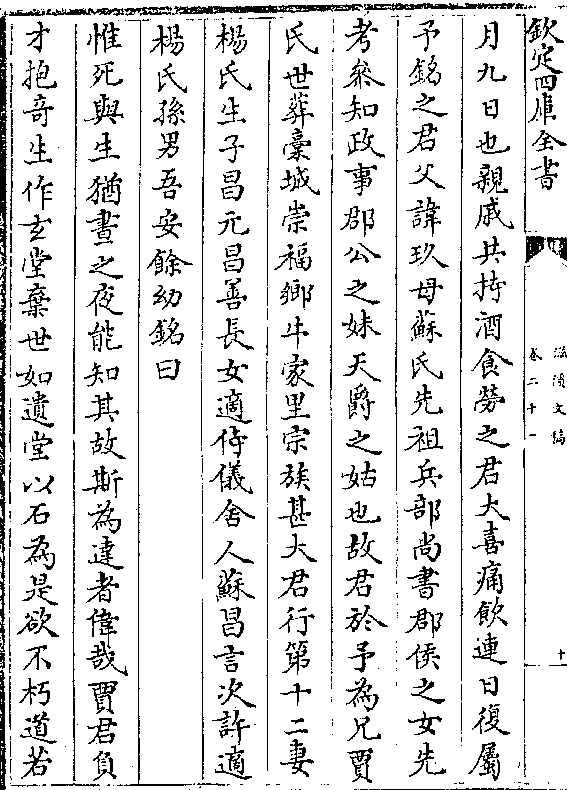 欽定四庫全書
滋溪文稿
卷二十一
十
月九日也親戚共持酒食勞之君大喜痛飲連日復屬
予銘之君父諱玖母蘇氏先祖兵部尚書郡侯之女先
考叅知政事郡公之妹天爵之姑也故君於予為兄賈
氏世葬槀城崇福鄉牛家里宗族甚大君行第十二妻
楊氏生子昌元昌善長女適侍儀舍人蘇昌言次許適
楊氏孫男吾安餘幼銘曰
惟死與生猶晝之夜能知其故斯為達者偉哉賈君負
才抱奇生作玄堂棄世如遺堂以石為是欲不朽道若